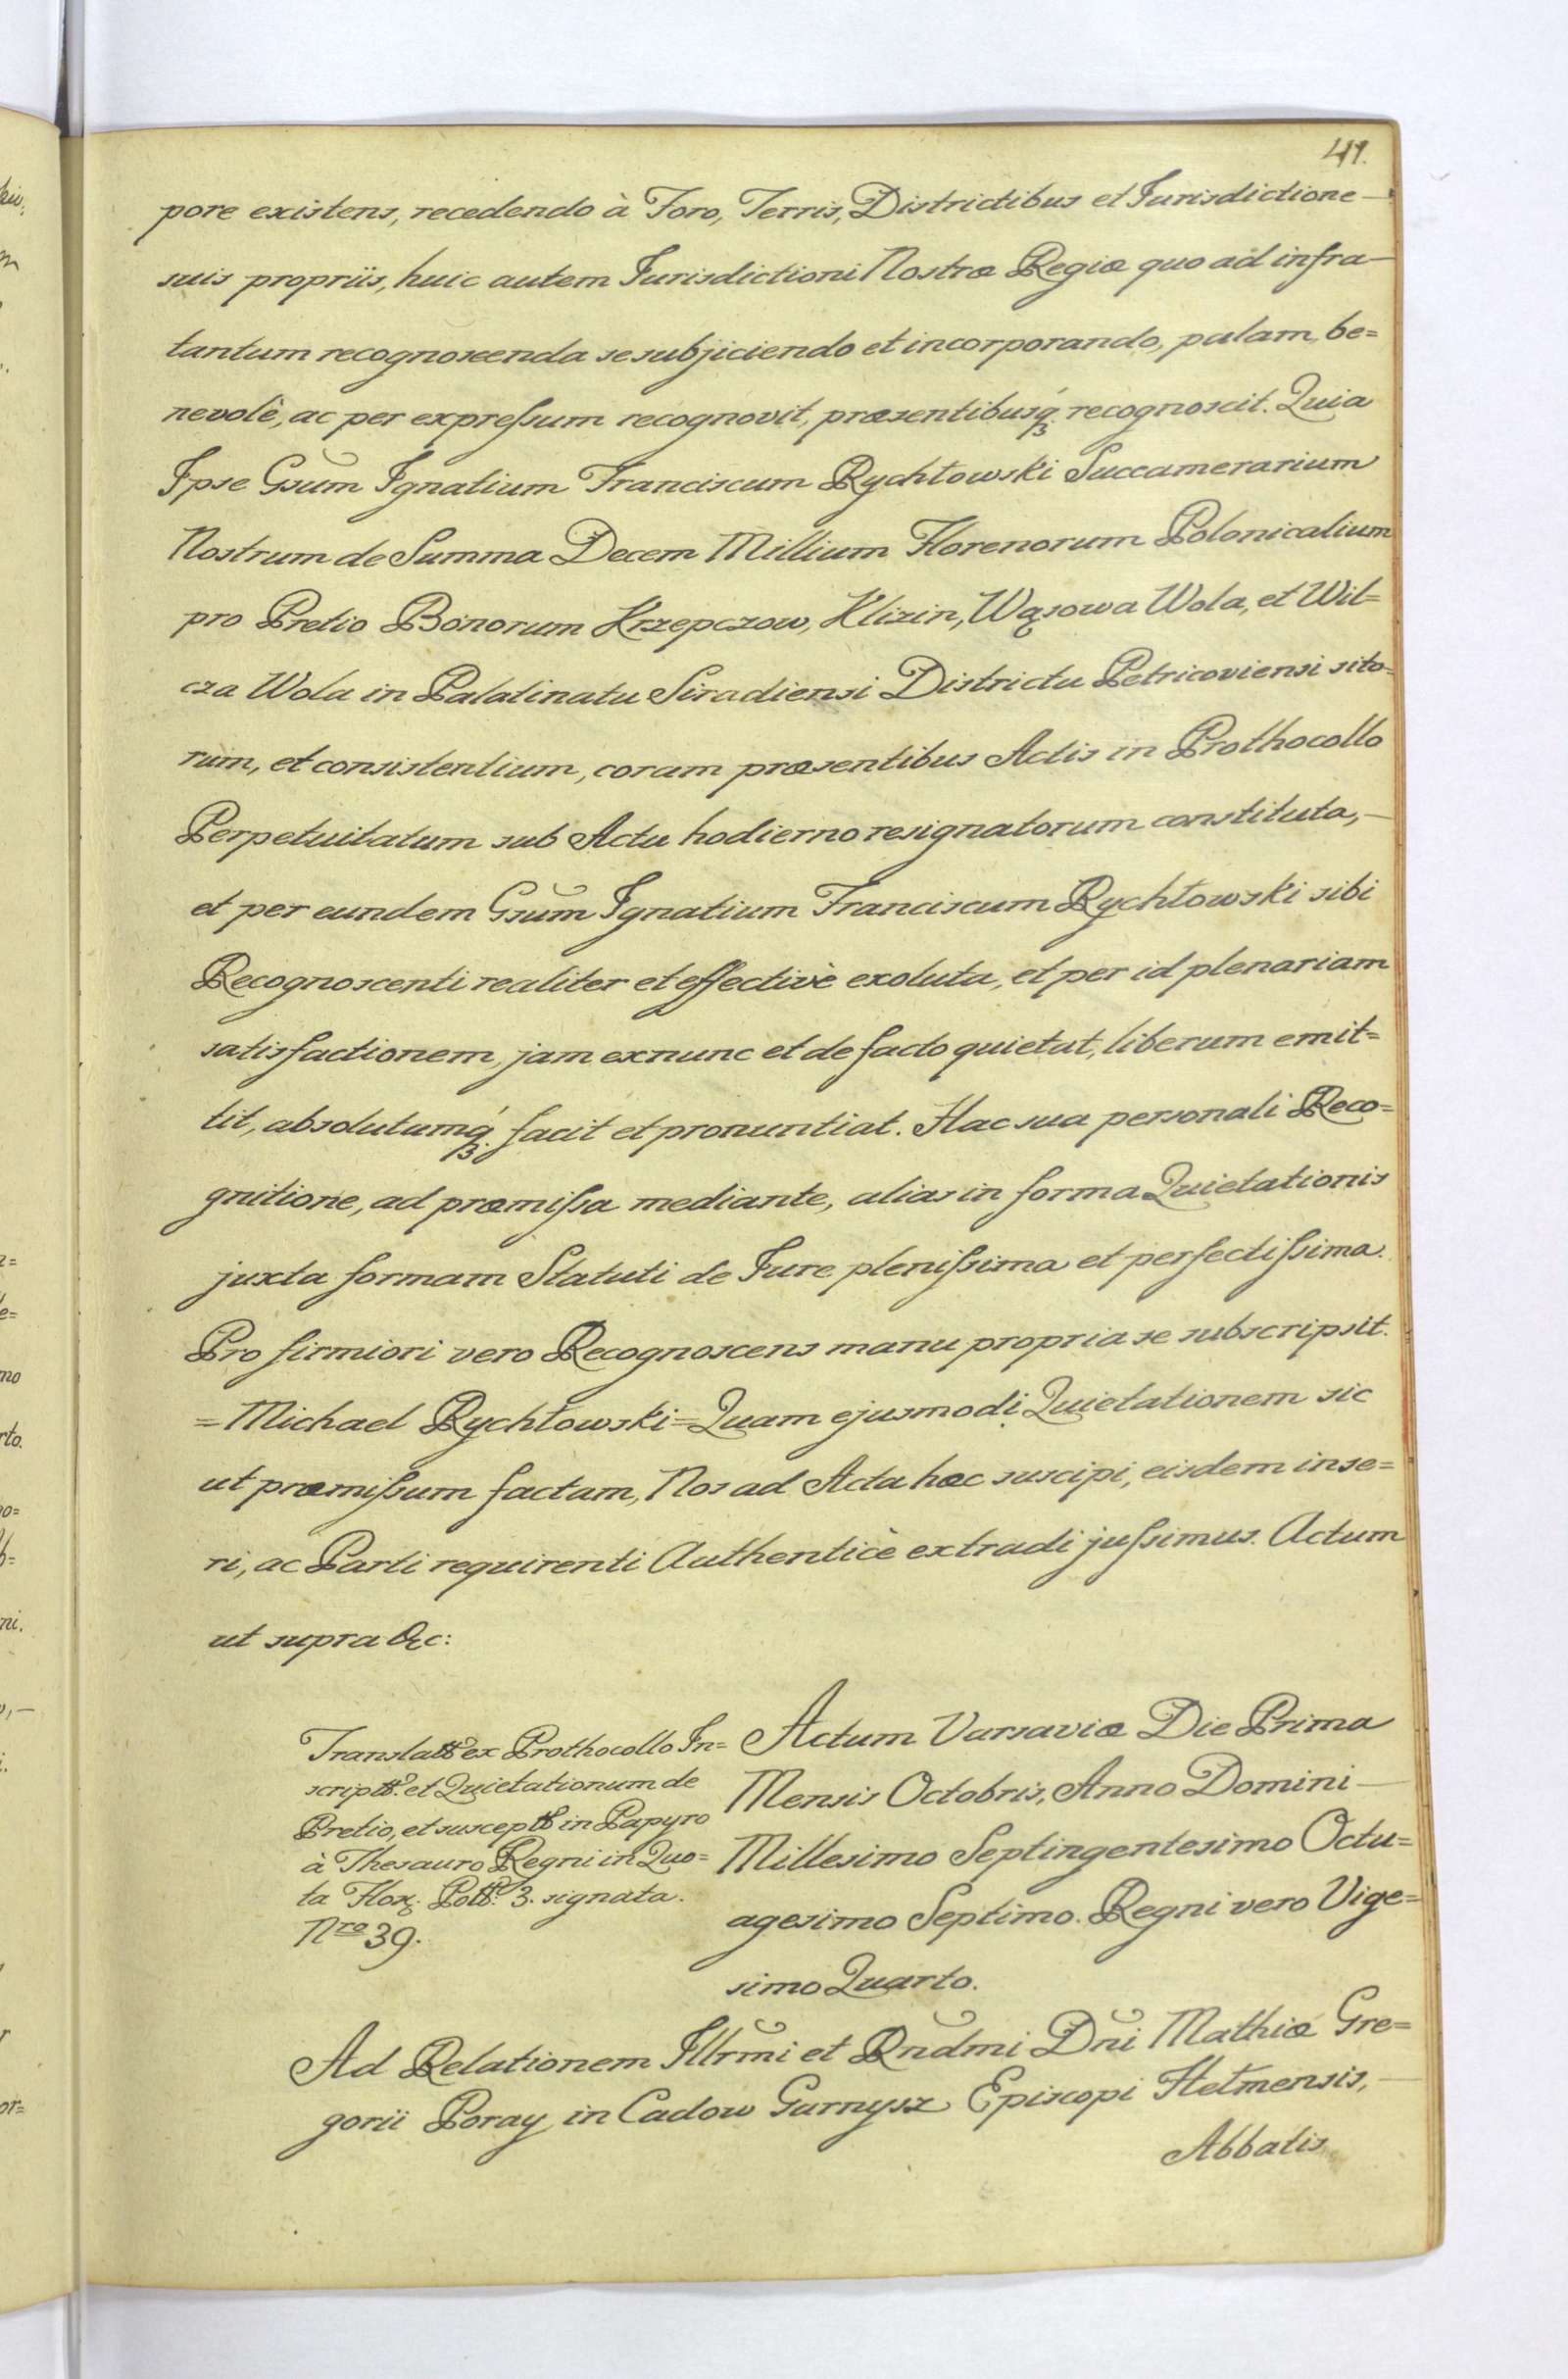 41.
pore existens, recedendo à Foro, Terris, Districtibus et Jurisdictione —
suis propriis, huic autem Jurisdictioni Nostræ Regiæ quo ad infra —
tantum recognoscenda se subjiciendo et incorporando, palam, be=
nevolè, ac per expreſsum recognovit, præsentibusq́ꝫ recognoscit. Quia
Ipse Gsum Ignatium Franciscum Rychłowski Succamerarium
Nostrum de Summa Decem Millium Florenorum Polonicalium
pro Pretio Bonorum Krzepczow, Klizin, Wąsowa Wola, et Wil=
cza Wola in Palatinatu Siradiensi Districtu Petricoviensi sito=
rum, et consistentium, coram præsentibus Actis in Prothocollo
Perpetuitatum sub Actu hodierno resignatorum constituta, —
et per eundem Gsum Ignatium Franciscum Rychłowski sibi
Recognoscenti realiter et effectivè exoluta, et per id plenariam
satisfactionem, jam exnunc et de facto quietat, liberum emit=
tit, absolutumq́ꝫ facit et pronuntiat. Hac sua personali Reco=
gnitione, ad præmiſsa mediante, alias in forma Quietationis
juxta formam Statuti de Jure pleniſsima et perfectiſsima.
Pro firmiori vero Recognoscens manu propria se subscripsit.
= Michael Rychłowski = Quam ejusmodi Quietationem sic
ut præmiſsum factam, Nos ad Acta hæc suscipi, eisdem inse=
ri, ac Parti requirenti Authenticè extradi juſsimus. Actum
ut supra &c:
Translatt ex Prothocollo In=
scriptt. et Quietationum de
Pretio, et susceptt in Papyro
à Thesauro Regni in Quo=
ta Flor. Poltt. 3. signata.
Nro 39.
Actum Varsaviæ Die Prima
Mensis Octobris, Anno Domini —
Millesimo Septingentesimo Octu=
agesimo Septimo. Regni vero Vige=
simo Quarto.
Ad Relationem Illrmi et Rndmi Dni Mathiæ Gre=
gorii Poray in Cadow Garnysz Episcopi Hełmensis, —
Abbatis